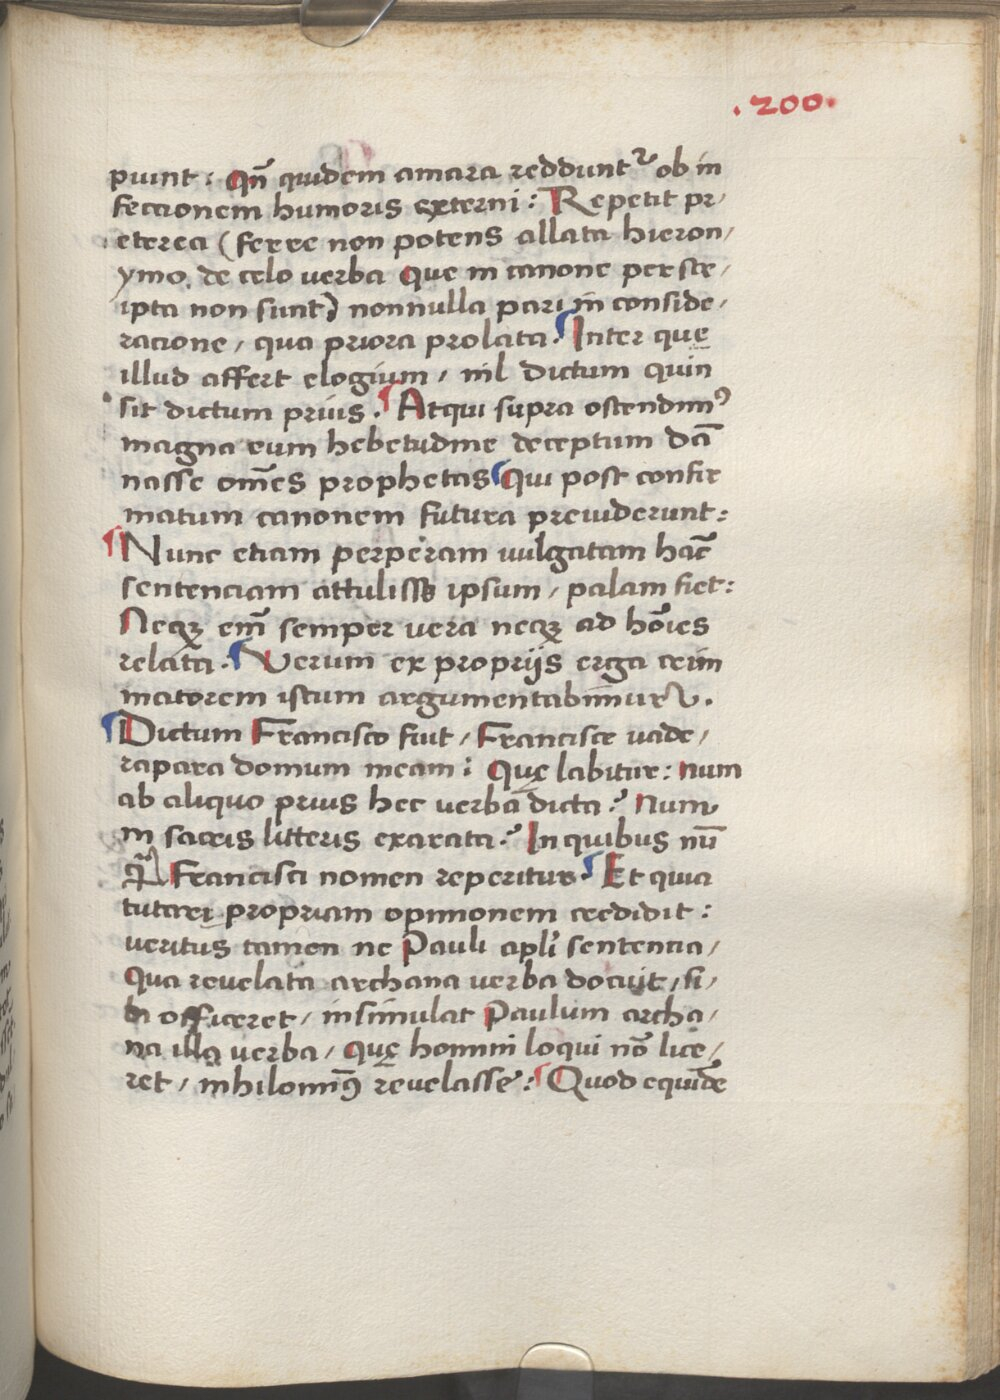 .200.
piunt: Qñ quidem amara reddunt᷑ ob in
feccionem humoris externi: Repetit pr/
eterea (ferre non potens allata hieron/
ymo de celo verba Que in canone perscr/
ipta non sunt) nonnulla pari in conside/
racione, qua priora prolata. Inter quę
illud affert elogium, nil dictum quin
sit dictum prius. Atqui supra ostendimꝰ
magna eum hebetudine deceptum dā
nasse om̄es prophetas Qui post confir
matum canonem futura previderunt:
Nunc etiam perperam vulgatam hāc
sentenciam attulisse ipsum, palam fiet:
Neqꝫ em̄ semper vera neqꝫ ad hoīes
relata. Verum ex proprijs erga crim
inatorem istum argumentabimur.
Dictum Francisco fuit, Francisce vade,
rapara domum meam: Quę labitur: num
ab aliquo prius hec verba dicta? Num
in sacris litteris exarata? In quibus nū
q̄ Francisci nomen reperitur. Et quia
tutari propriam opinionem credidit:
veritus tamen ne Pauli apli sentencia,
Qua revelata archana verba docuit, si/
bi officeret, insimulat Paulum archa/
na illa verba, Quę homini loqui nō lice/
ret, nihilominꝰ revelasse: Quod equidē